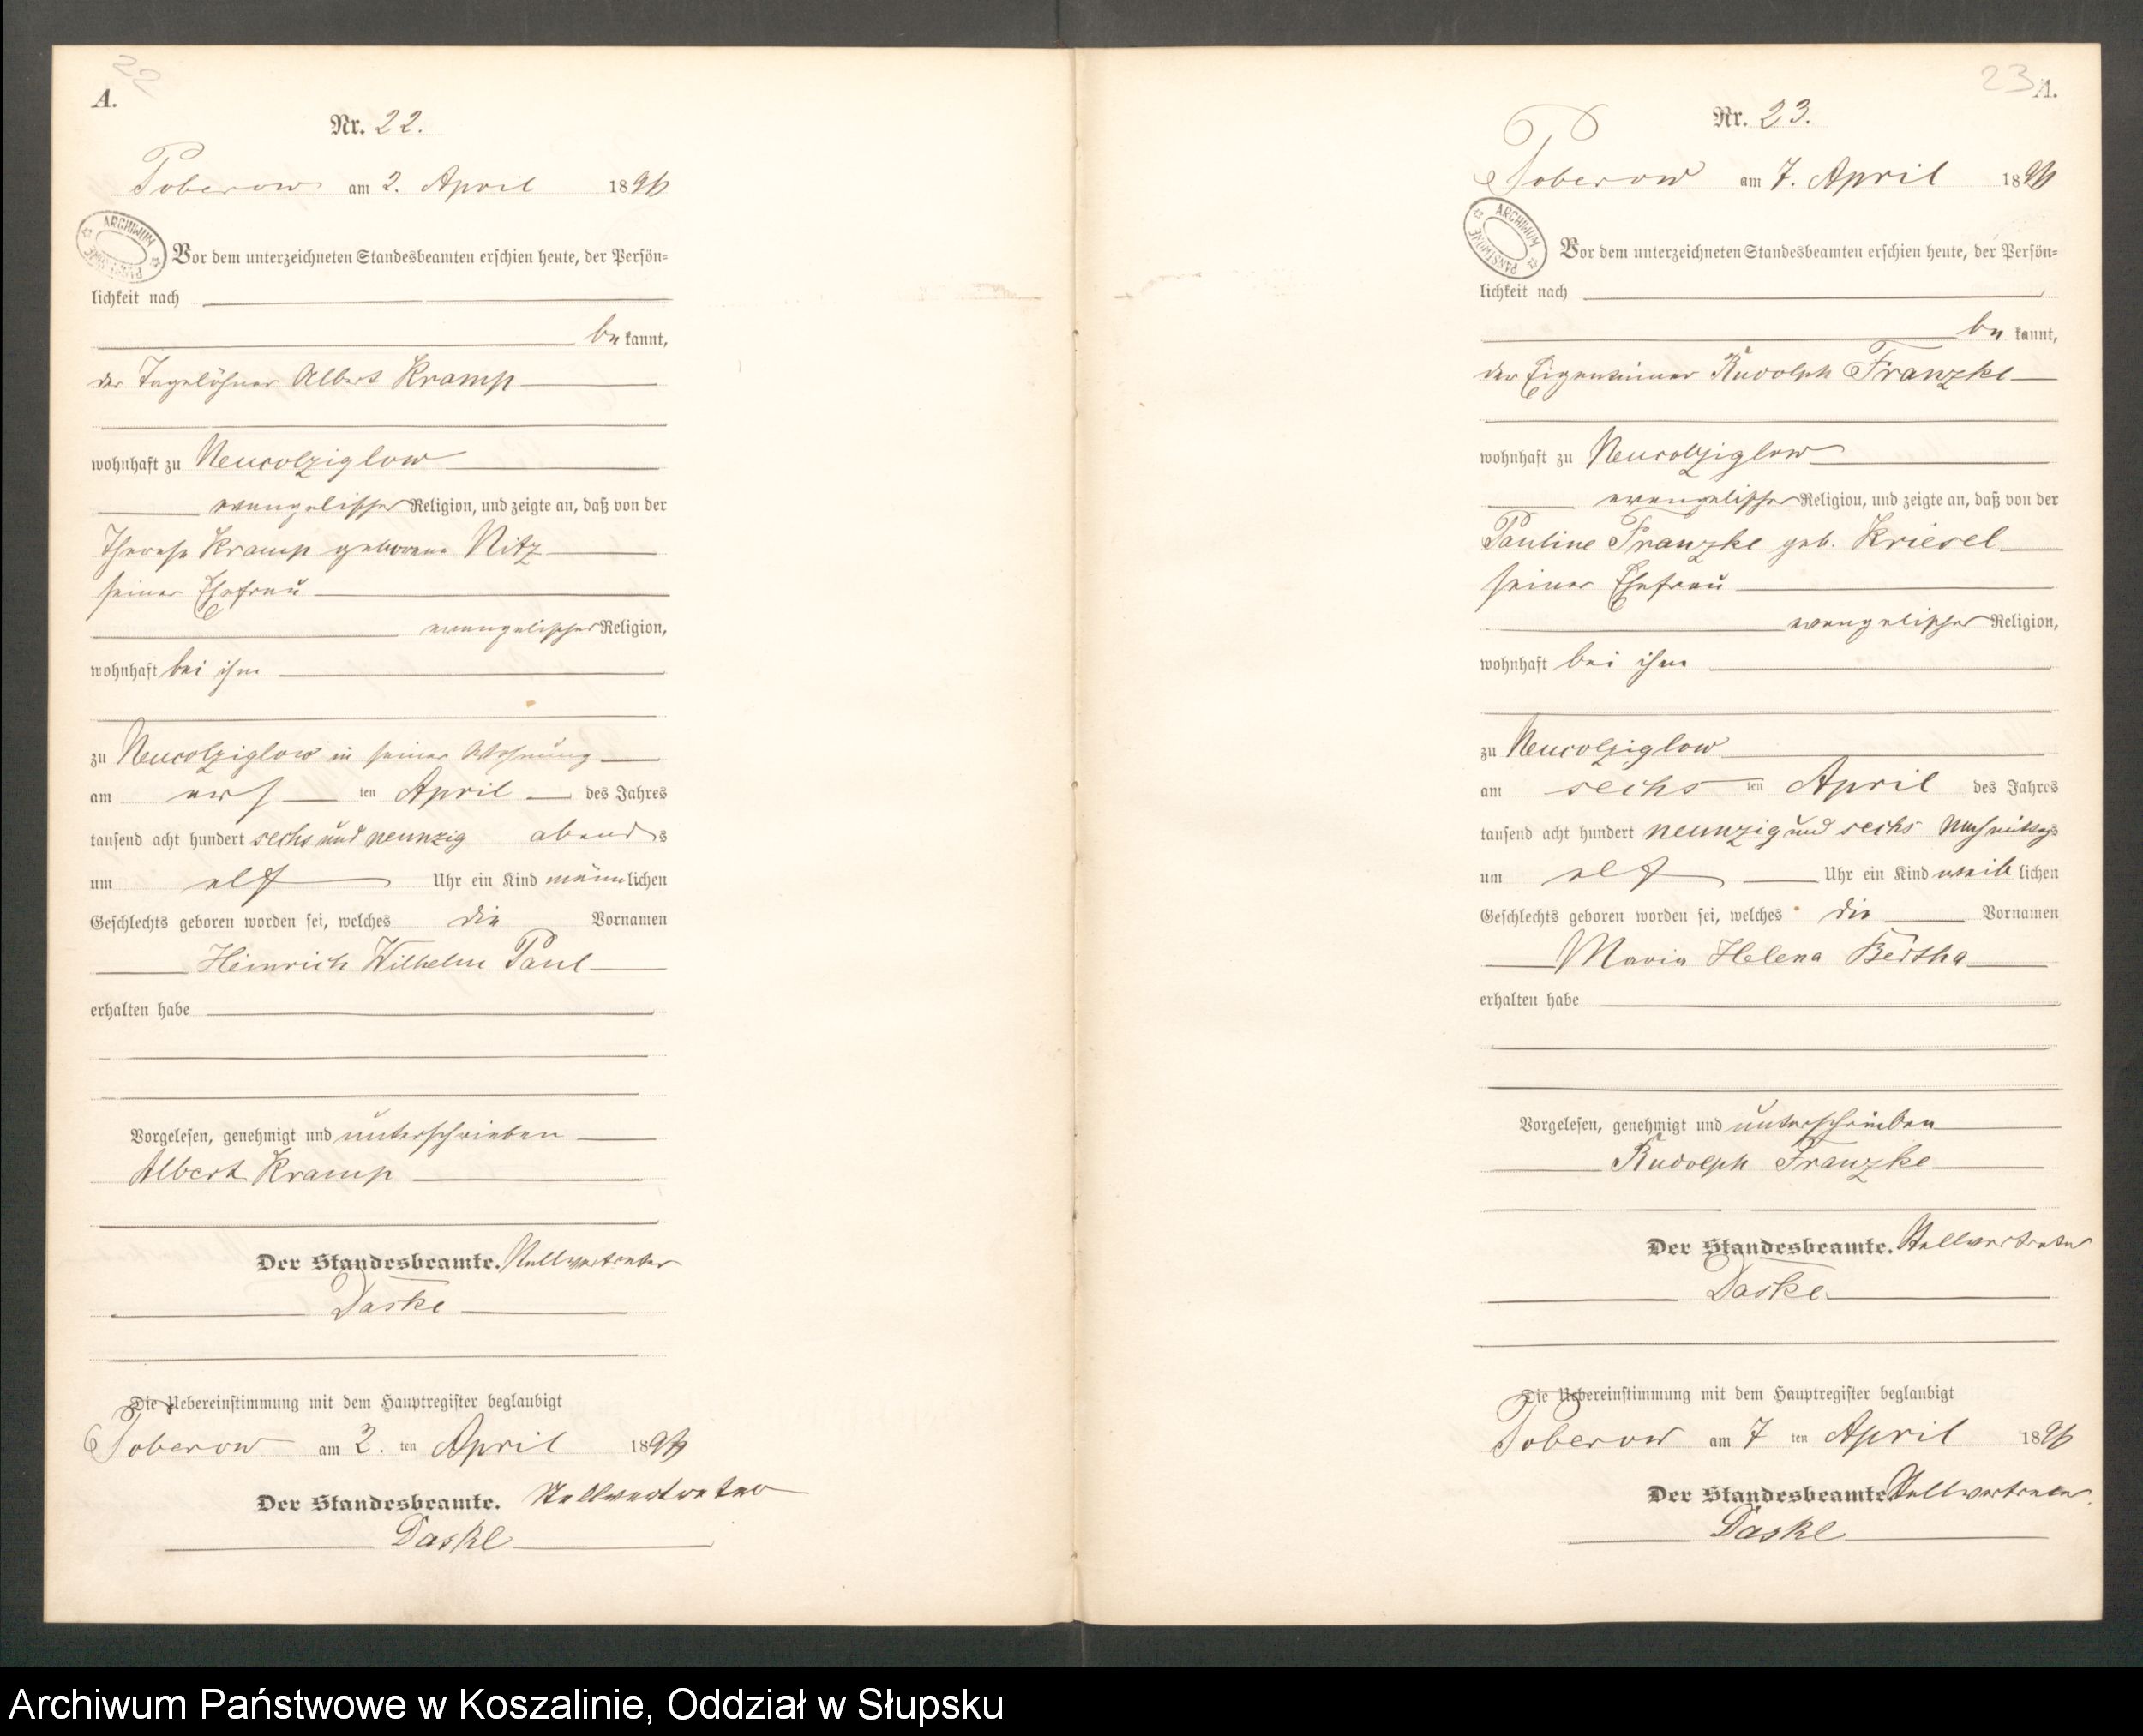 22
A.
Nr. 22.
Poberow am 2. April 1896
ARCHIWUM PAŃSTWOWE
Vor dem unterzeichneten Standesbeamten erschien heute, der Persön-
lichkeit nach
bekannt,
der Tagelöhner Albert Kramp
wohnhaft zu Neucolziglow
evangelischer Religion, und zeigte an, daß von der
Therese Kramp geborene Nitz
seiner Ehefrau
evangelischer Religion,
wohnhaft bei ihm
zu Neucolziglow in seiner Wohnung
am ersten April des Jahres
tausend acht hundert sechs und neunzig abends
um elf Uhr ein Kind männlichen
Geschlechts geboren worden sei, welches die Vornamen
Heinrich Wilhelm Paul
erhalten habe
Vorgelesen, genehmigt und unterschrieben
Albert Kramp
Der Standesbeamte. Stellvertreter
Daske
Die Uebereinstimmung mit dem Hauptregister beglaubigt
Poberow am 2. ten April 1896
Der Standesbeamte. Stellvertreter
Daske
23
A.
Nr. 23.
Poberow am 7. April 1896
ARCHIWUM PAŃSTWOWE
Vor dem unterzeichneten Standesbeamten erschien heute, der Persön-
lichkeit nach
bekannt,
der Eigentümer Rudolph Franzke
wohnhaft zu Neucolziglow
evangelischer Religion, und zeigte an, daß von der
Pauline Franzke geb. Kriesel
seiner Ehefrau
evangelischer Religion,
wohnhaft bei ihm
zu Neucolziglow
am sechsten April des Jahres
tausend acht hundert neunzig und sechs Nachmittags
um elf Uhr ein Kind weiblichen
Geschlechts geboren worden sei, welches die Vornamen
Maria Helena Bertha
erhalten habe
Vorgelesen, genehmigt und unterschrieben
Rudolph Franzke
Der Standesbeamte. Stellvertreter
Daske
Die Uebereinstimmung mit dem Hauptregister beglaubigt
Poberow am 7 ten April 1896
Der Standesbeamte. Stellvertreter
Daske
Archiwum Państwowe w Koszalinie, Oddział w Słupsku